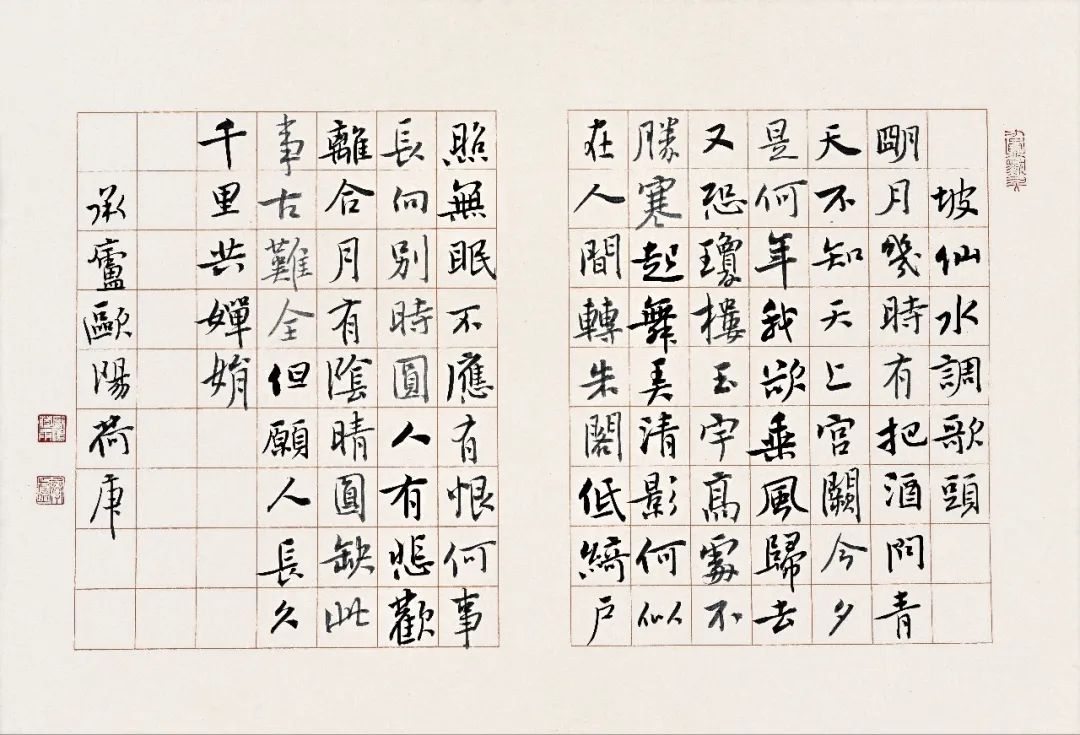 坡仙水調歌頭
朙月幾時有把酒問青
天不知天上宮闕今夕
是何年我欲乘風歸去
又恐瓊樓玉宇高處不
勝寒起舞弄清影何似
在人間轉朱閣低綺戶
照無眠不應有恨何事
長向別時圓人有悲歡
離合月有陰晴圓缺此
事古難全但願人長久
千里共嬋娟
承廬歐陽荷庚